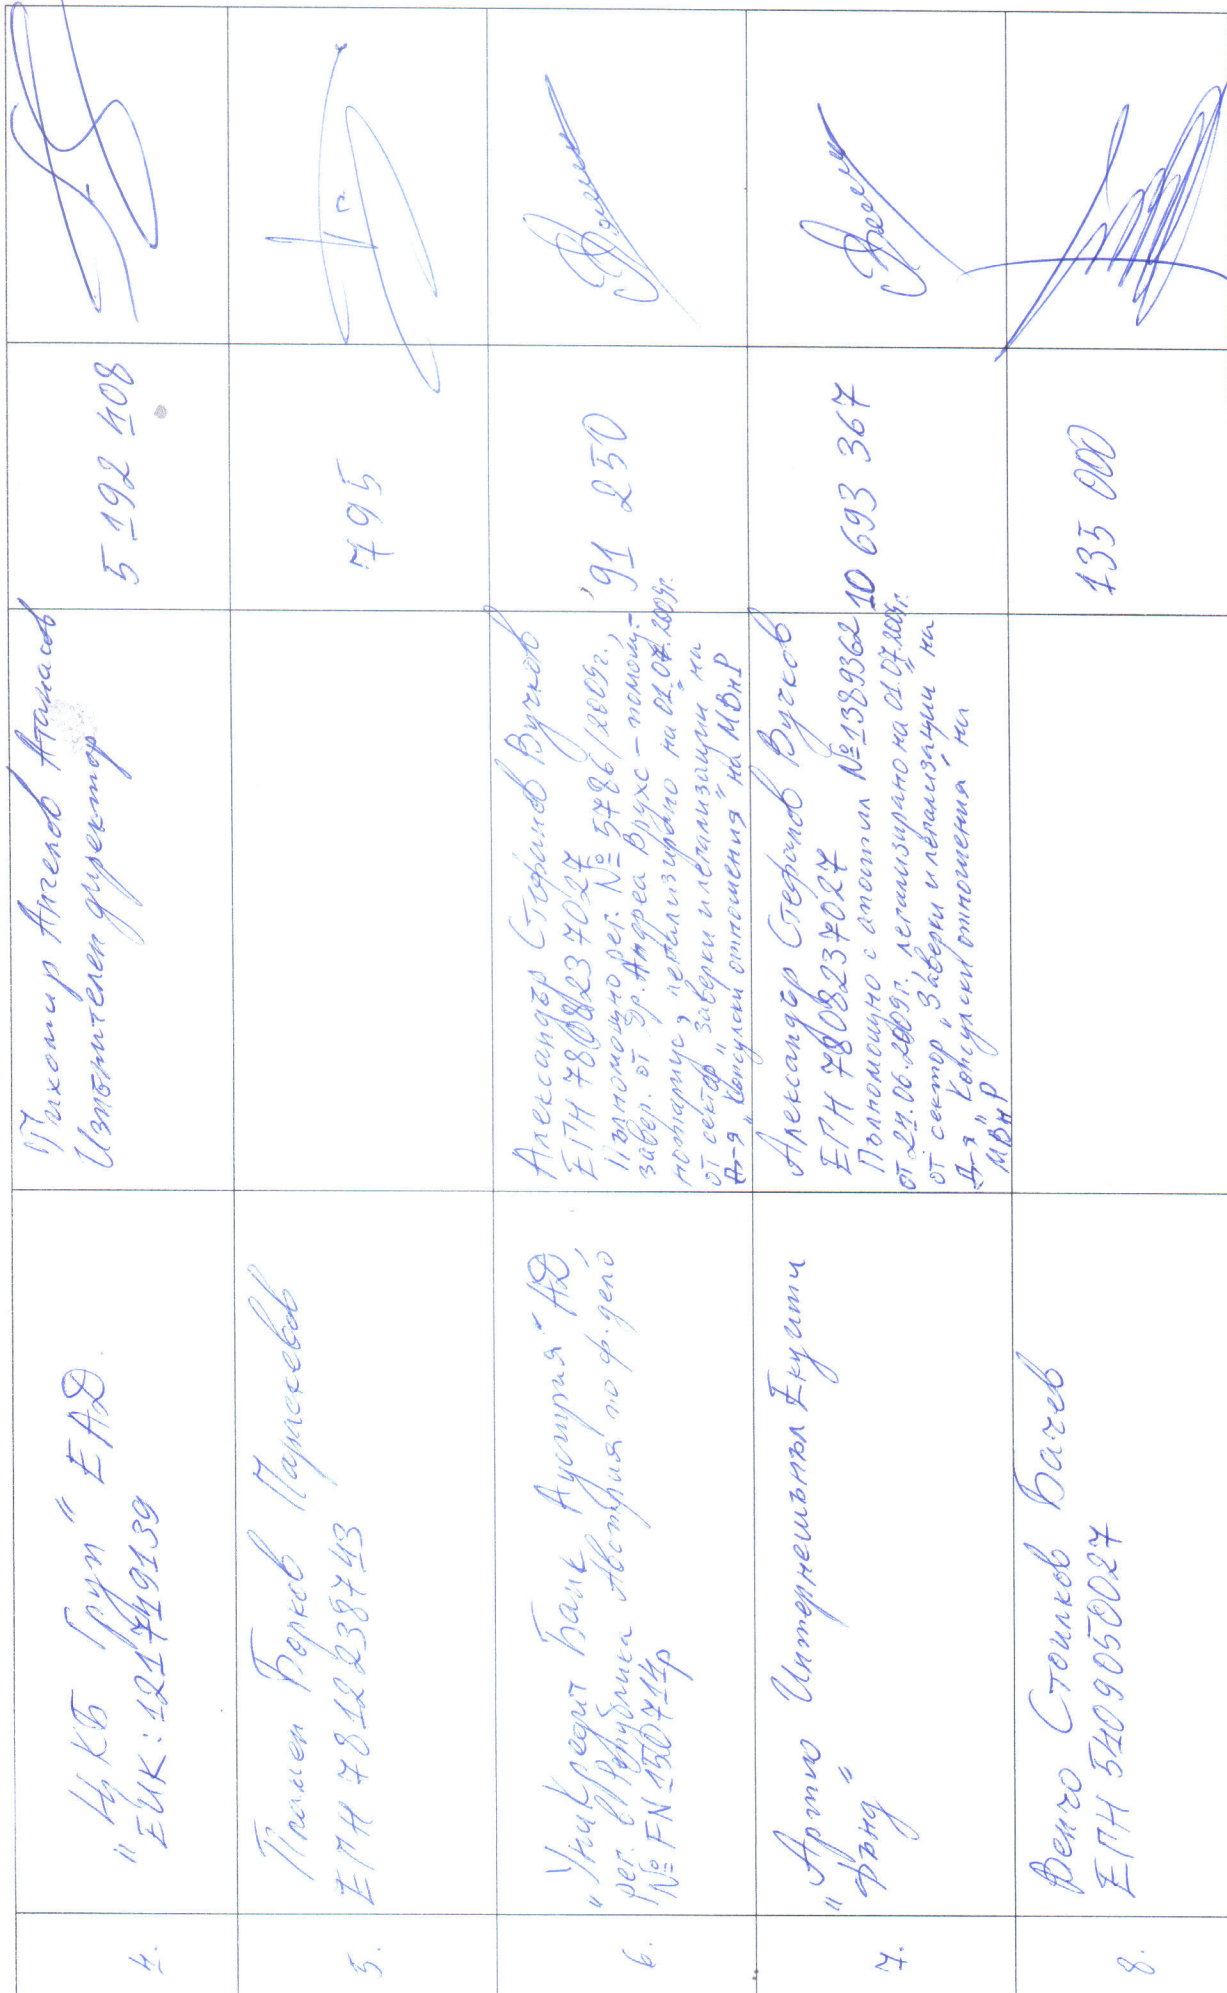 4.
"ЦКБ Груп" ЕАД
ЕИК: 121749139
Тихомир Ангелов Атанасов
Изпълнителен директор
5 192 408
5.
Пламен Борков Парнсевов
ЕГН 7812238743
795
6.
"УниКредит Банк Аустрия" АД,
рег. в Република Австрия по ф. дело
№ FN 150714p
Александър Стефанов Вучков
ЕГН 7808237027
Пълномощно рег. № 5786/2009г.,
завер. от Др. Андреа Врухс – помощ-
нотариус, легализирано на 01.07.2009г.
от сектор "Заверки и легализации" на
Д-я "Консулски отношения" на МВнР
91 250
7.
"Артио Интернешънъл Екуити
Фънд"
Александър Стефанов Вучков
ЕГН 7808237027
Пълномощно с апостил № 1389362
от 24.06.2009г. легализирано на 01.07.2009г.
от сектор "Заверки и легализации" на
Д-я "Консулски отношения" на
МВнР
10 693 367
8.
Венчо Стоилков Бачев
ЕГН 5409050027
135 000